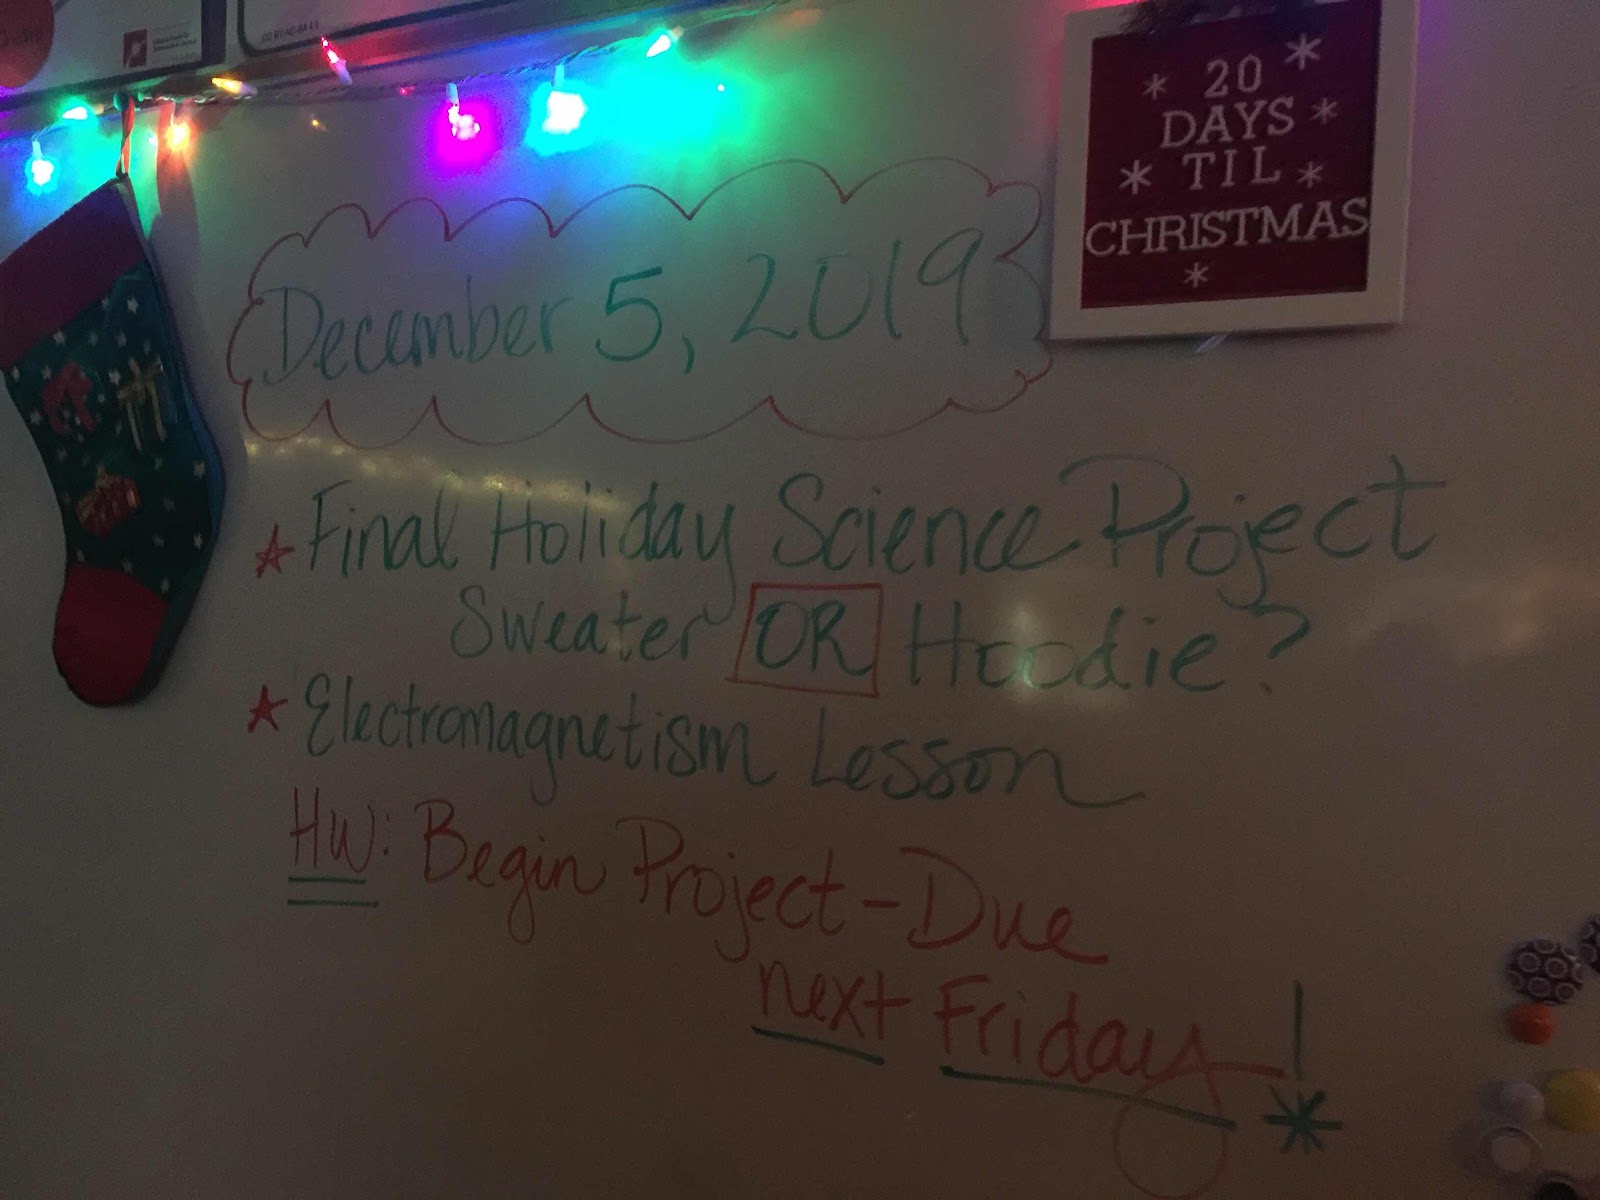 20
DAYS
TIL
CHRISTMAS
December 5, 2019
Final Holiday Science Project
Sweater OR Hoodie?
Electromagnetism Lesson
HW: Begin Project - Due
next Friday!